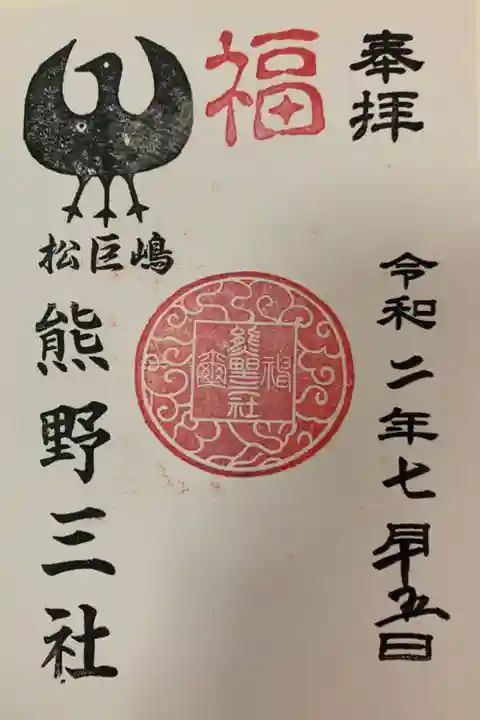 奉拝
令和二年七月十五日
福
松巨嶋
熊野三社